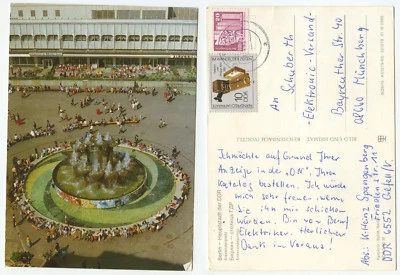 20
DDR
10
DDR
An Schuberth
-Elektronic-Versand-
Bayreuther Str. 40
08660 Münchberg
BILD UND HEIMAT
Berlin - Hauptstadt der DDR
Möchte auf Grund Ihrer
Anzeige in der "ON", Ihren
Katalog bestellen. Ich würde
mich sehr freuen, wenn
Sie ihn mir schicken
würden. Bin von Beruf
Elektriker. Herzlichen
Dank im Voraus!
Abs. K-Heinz Spangenberg
Friedenstr. 11
DDR 6552 Gefell/V.